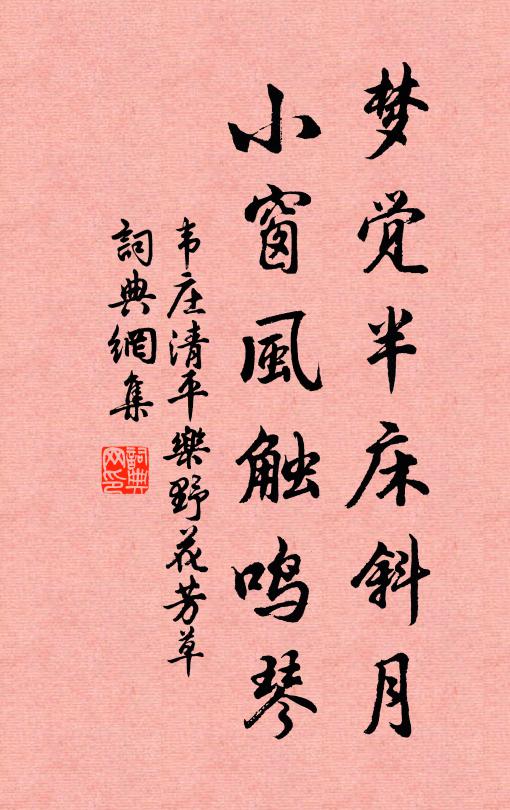 梦觉半床斜月
小窗風触鸣琴
韦庄清平樂野花芳草
詞典網集
詞典网印